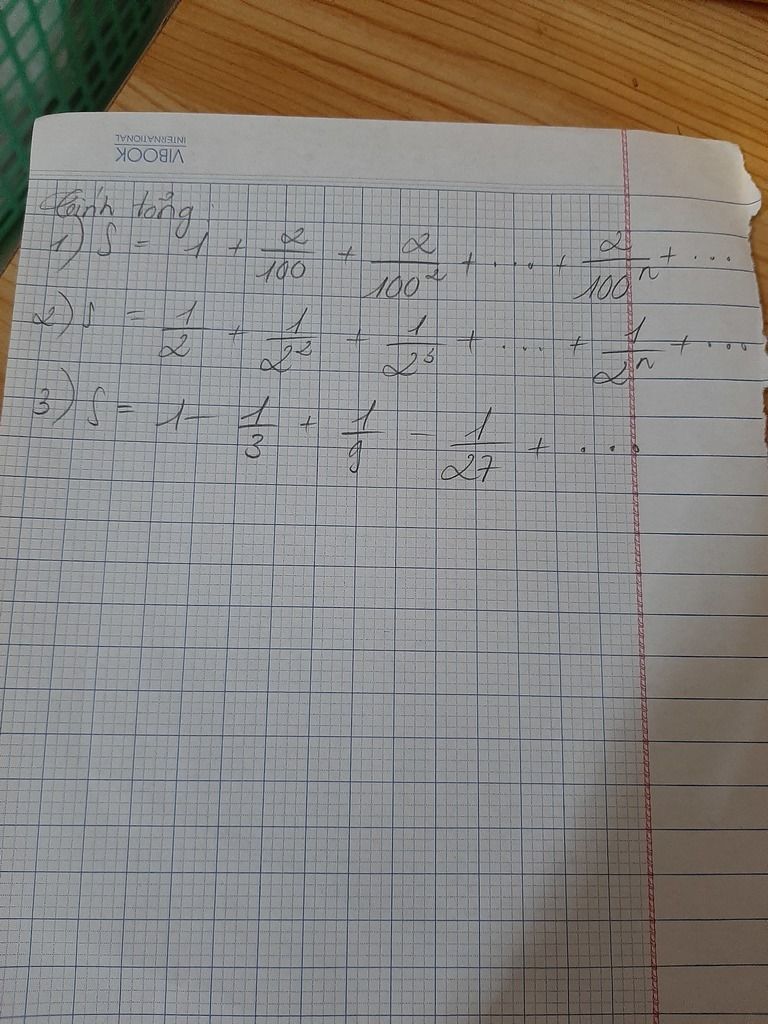 VIBOOK
INTERNATIONAL
Tính tổng:
1) S = 1 + 2/100 + 2/100² + .... + 2/100ⁿ + ...
2) S = 1/2 + 1/2² + 1/2³ + .... + 1/2ⁿ + ...
3) S = 1 - 1/3 + 1/9 - 1/27 + ...